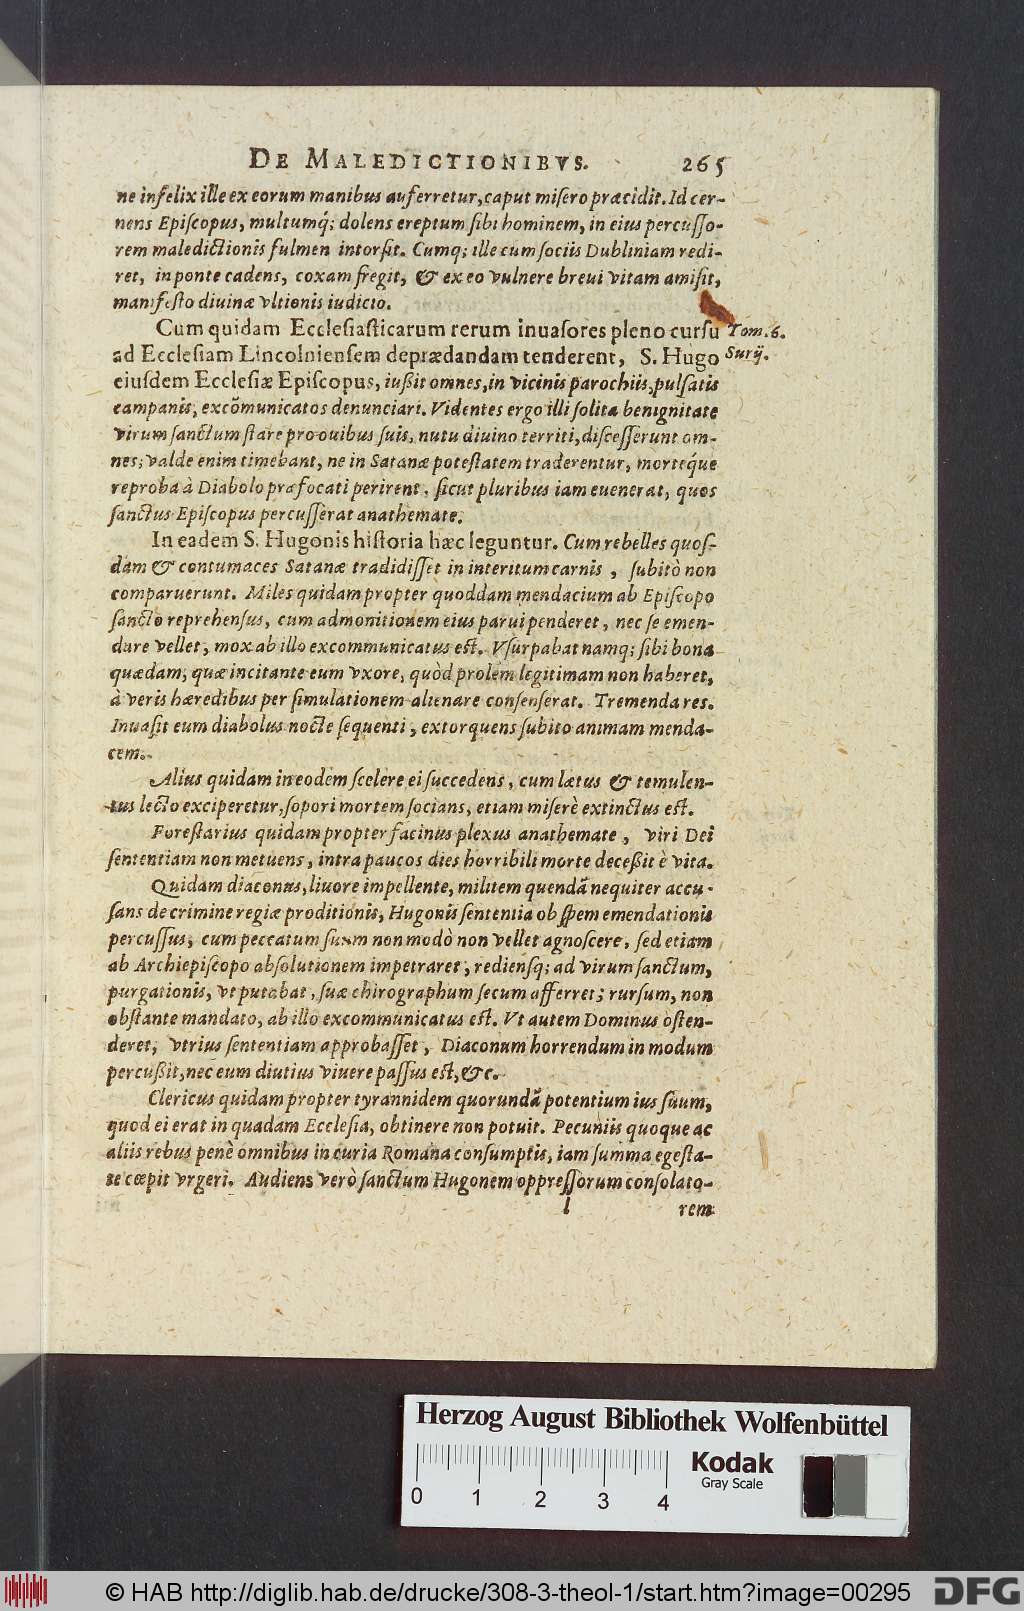 DE MALEDICTIONIBVS. 265
ne infelix ille ex eorum manibus auferretur, caput misero præcidit. Id cer-
nens Episcopus, multumq́; dolens ereptum sibi hominem, in eius percusso-
rem maledictionis fulmen intorsit. Cumq; ille cum sociis Dubliniam redi-
ret, in ponte cadens, coxam fregit, & ex eo vulnere breui vitam amisit,
manifesto diuinæ vltionis iudicio.
Cum quidam Ecclesiasticarum rerum inuasores pleno cursu Tom. 6.
ad Ecclesiam Lincolniensem deprædandam tenderent, S. Hugo Surij.
eiusdem Ecclesiæ Episcopus, iußit omnes, in vicinis parochiis, pulsatis
campanis, excõmunicatos denunciari. Videntes ergo illi solita benignitate
virum sanctum stare pro ouibus suis, nutu diuino territi, discesserunt om-
nes; valde enim timebant, ne in Satanæ potestatem traderentur, morteq́ue
reproba à Diabolo præfocati perirent, sicut pluribus iam euenerat, quos
sanctus Episcopus percusserat anathemate.
In eadem S. Hugonis historia hæc leguntur. Cum rebelles quos-
dam & contumaces Satanæ tradidisset in interitum carnis, subitò non
comparuerunt. Miles quidam propter quoddam mendacium ab Episcopo
sancto reprehensus, cum admonitionem eius parui penderet, nec se emen-
dare vellet, mox ab illo excommunicatus est. Vsurpabat namq; sibi bona
quædam, quæ incitante eum vxore, quòd prolem legitimam non haberet,
à veris hæredibus per simulationem alienare consenserat. Tremenda res.
Inuasit eum diabolus nocte sequenti, extorquens subito animam menda-
cem.
Alius quidam in eodem scelere ei succedens, cum lætus & temulen-
tus lecto exciperetur, sopori mortem socians, etiam miserè extinctus est.
Forestarius quidam propter facinus plexus anathemate, viri Dei
sententiam non metuens, intra paucos dies horribili morte deceßit è vita.
Quidam diaconus, liuore impellente, militem quendã nequiter accu-
sans de crimine regiæ proditionis, Hugonis sententia ob spem emendationis
percussus, cum peccatum suum non modò non vellet agnoscere, sed etiam
ab Archiepiscopo absolutionem impetraret, rediensq; ad virum sanctum,
purgationis, vt putabat, suæ chirographum secum afferret; rursum, non
obstante mandato, ab illo excommunicatus est. Vt autem Dominus osten-
deret, vtrius sententiam approbasset, Diaconum horrendum in modum
percußit, nec eum diutius viuere passus est, &c.
Clericus quidam propter tyrannidem quorundã potentium ius suum,
quod ei erat in quadam Ecclesia, obtinere non potuit. Pecuniis quoque ac
aliis rebus penè omnibus in curia Romana consumptis, iam summa egesta-
te cœpit vrgeri. Audiens verò sanctum Hugonem oppressorum consolato-
l rem
Herzog August Bibliothek Wolfenbüttel
Kodak
Gray Scale
0 1 2 3 4
© HAB http://diglib.hab.de/drucke/308-3-theol-1/start.htm?image=00295 DFG